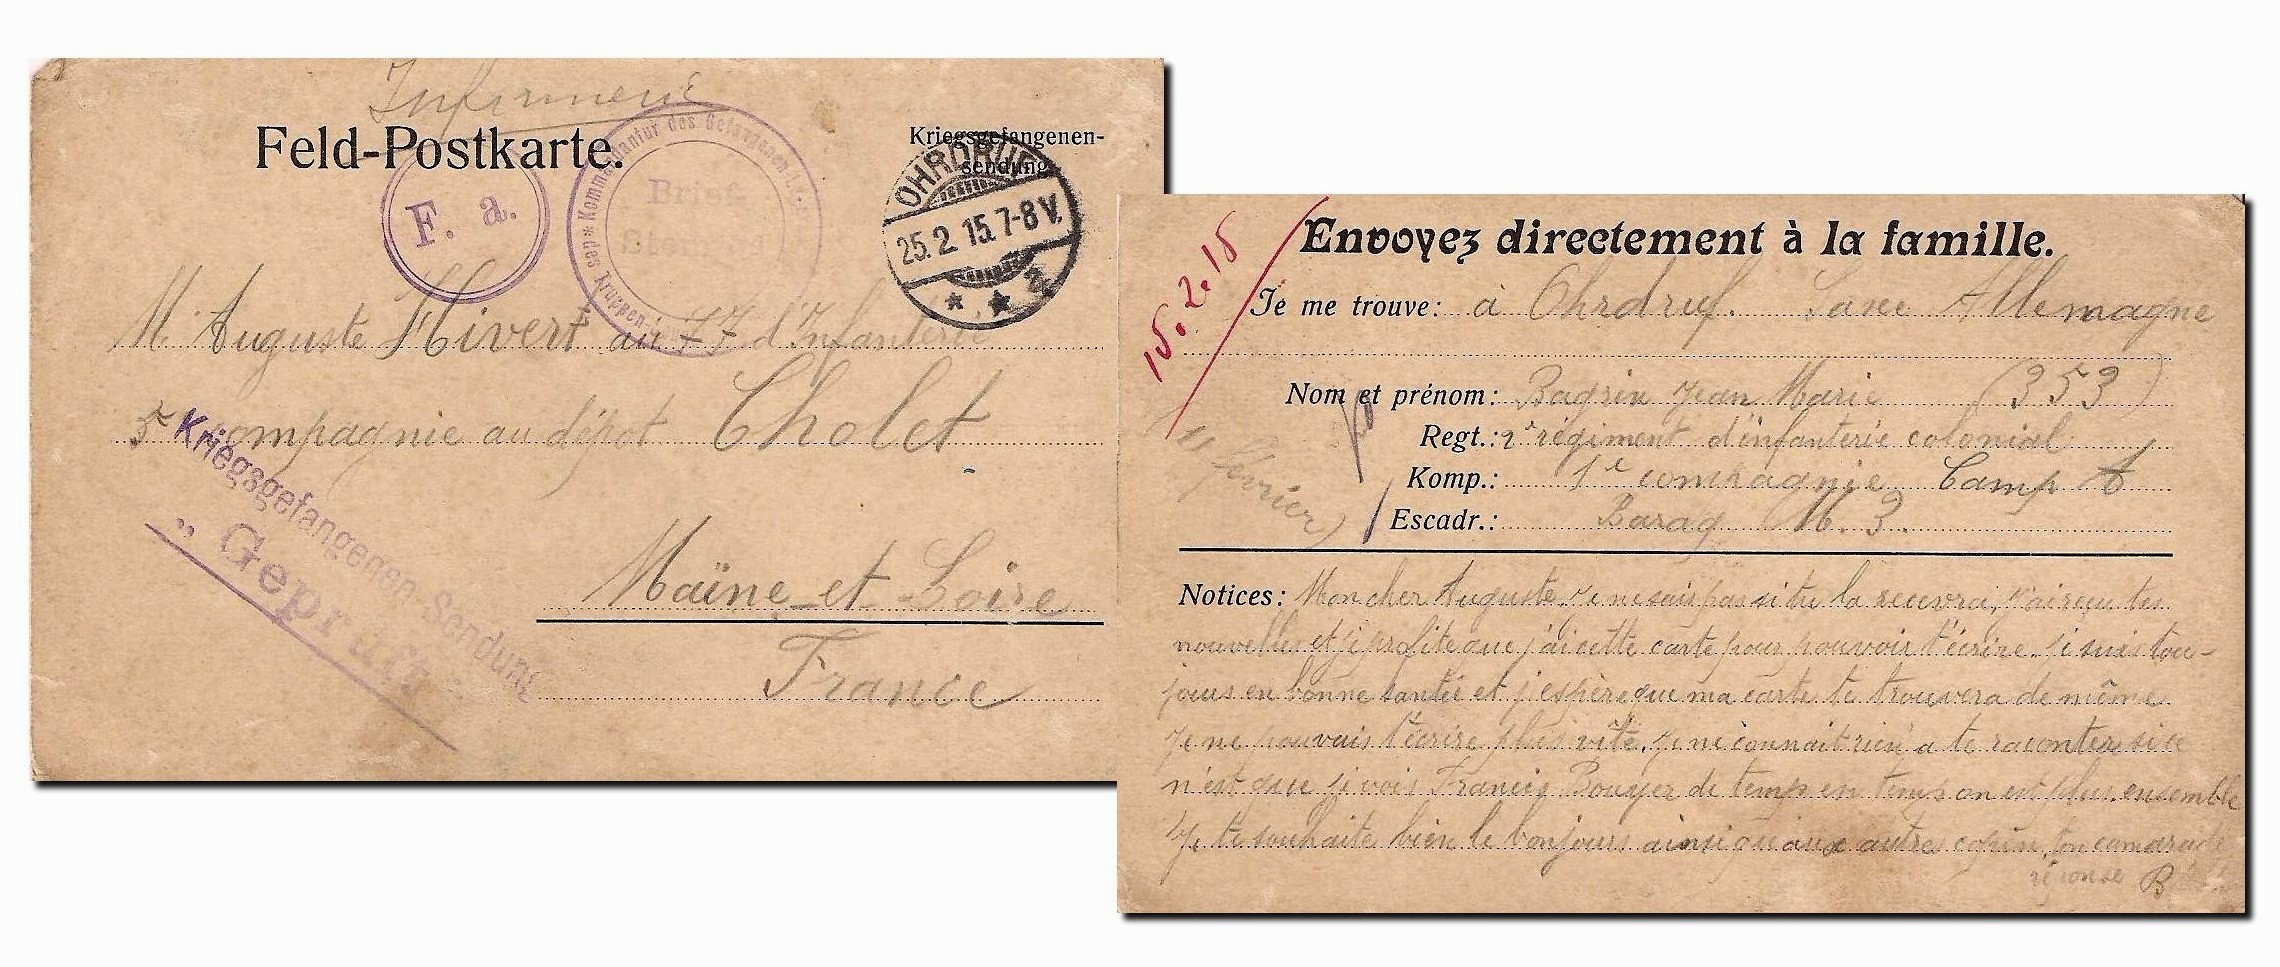 Infirmerie
Feld-Postkarte.
Kriegsgefangenen-
sendung
F. a.
Kommandantur des Gefangenen-
des Truppen-
Brief
OHRDRUF
25.2.15.7-8V.
2
M. Auguste Hivert au 77 d'Infanterie
5 compagnie au dépot Cholet
Kriegsgefangenen-Sendung
„Geprüft"
Maïne-et-Loire
France
Envoyez directement à la famille.
15.2.15
Je me trouve: à Ohrdruf. Saxe Allemagne
Nom et prénom: Bagrin Jean Marie (353)
Regt.: 2e régiment d'infanterie colonial
Komp.: 1e compagnie Camp A
Escadr.: Baraq N. 3.
11 février)
Notices: Mon cher Auguste, je ne sais pas si tu la recevra, j'ai reçu tes
nouvelles et je profite que j'ai cette carte pour pouvoir t'écrire. je suis tou-
jours en bonne santée et j'espère que ma carte te trouvera de même
Je ne pouvais t'écrire plus vite. Je ne connait rien a te raconter si ce
n'est que je vois Francis Bouyer de temps en temps on est plus ensemble
Je te souhaite bien le bonjours ainsi qu'aux autres copin, ton camarade
réponse B